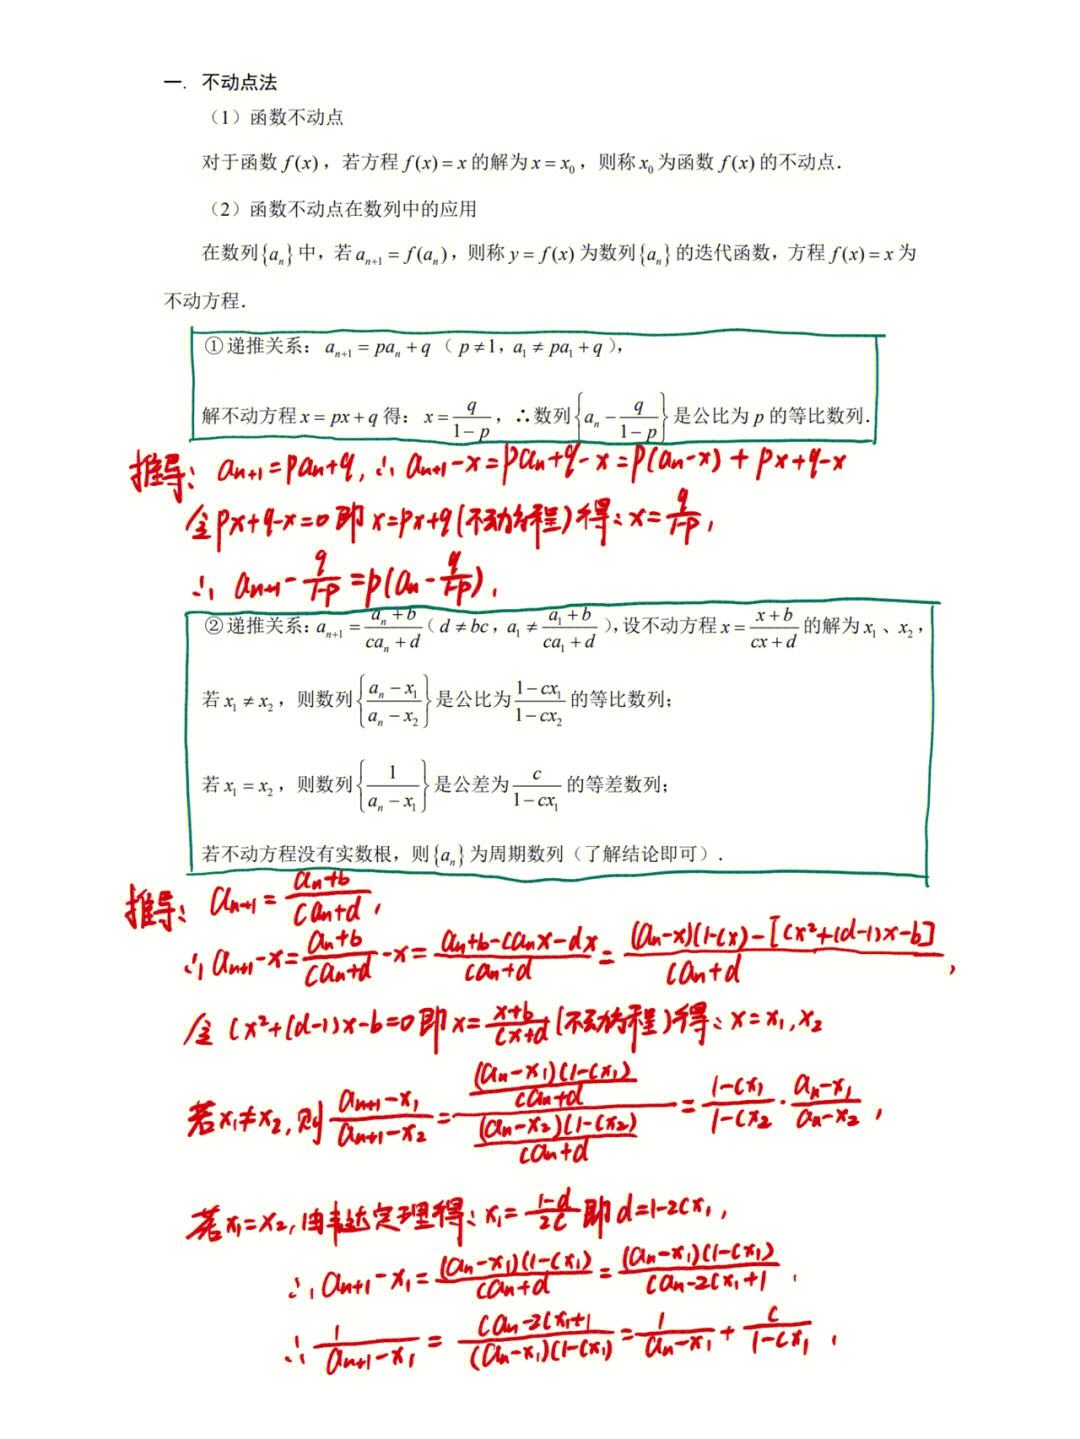 一. 不动点法
（1）函数不动点
对于函数 f(x)，若方程 f(x) = x 的解为 x = x₀，则称 x₀ 为函数 f(x) 的不动点.
（2）函数不动点在数列中的应用
在数列{aₙ}中，若 aₙ₊₁ = f(aₙ)，则称 y = f(x) 为数列{aₙ}的迭代函数，方程 f(x) = x 为
不动方程.
①递推关系：aₙ₊₁ = paₙ + q（p ≠ 1，a₁ ≠ pa₁ + q），
解不动方程 x = px + q 得：x = q/(1−p)，∴数列{aₙ − q/(1−p)}是公比为 p 的等比数列.
推导：aₙ₊₁=paₙ+q，∴ aₙ₊₁−x=paₙ+q−x=p(aₙ−x)+px+q−x
令px+q−x=0即x=px+q(不动方程)得：x=q/(1−p)，
∴ aₙ₊₁−q/(1−p)=p(aₙ−q/(1−p)).
②递推关系：aₙ₊₁ = (aₙ+b)/(caₙ+d)（d ≠ bc，a₁ ≠ (a₁+b)/(ca₁+d)），设不动方程 x = (x+b)/(cx+d) 的解为 x₁、x₂，
若 x₁ ≠ x₂，则数列{(aₙ−x₁)/(aₙ−x₂)}是公比为 (1−cx₁)/(1−cx₂) 的等比数列；
若 x₁ = x₂，则数列{1/(aₙ−x₁)}是公差为 c/(1−cx₁) 的等差数列；
若不动方程没有实数根，则{aₙ}为周期数列（了解结论即可）.
推导：aₙ₊₁=(aₙ+b)/(caₙ+d)，
∴ aₙ₊₁−x=(aₙ+b)/(caₙ+d)−x=(aₙ+b−caₙx−dx)/(caₙ+d)=((aₙ−x)(1−cx)−[cx²+(d−1)x−b])/(caₙ+d)，
令 cx²+(d−1)x−b=0即x=(x+b)/(cx+d)(不动方程)得：x=x₁,x₂
若x₁≠x₂，则(aₙ₊₁−x₁)/(aₙ₊₁−x₂)=((aₙ−x₁)(1−cx₁)/(caₙ+d))/((aₙ−x₂)(1−cx₂)/(caₙ+d))=(1−cx₁)/(1−cx₂)·(aₙ−x₁)/(aₙ−x₂)，
若x₁=x₂，由韦达定理得：x₁=(1−d)/2c即d=1−2cx₁，
∴ aₙ₊₁−x₁=(aₙ−x₁)(1−cx₁)/(caₙ+d)=(aₙ−x₁)(1−cx₁)/(caₙ−2cx₁+1).
∴ 1/(aₙ₊₁−x₁)=(caₙ−2cx₁+1)/((aₙ−x₁)(1−cx₁))=1/(aₙ−x₁)+c/(1−cx₁).